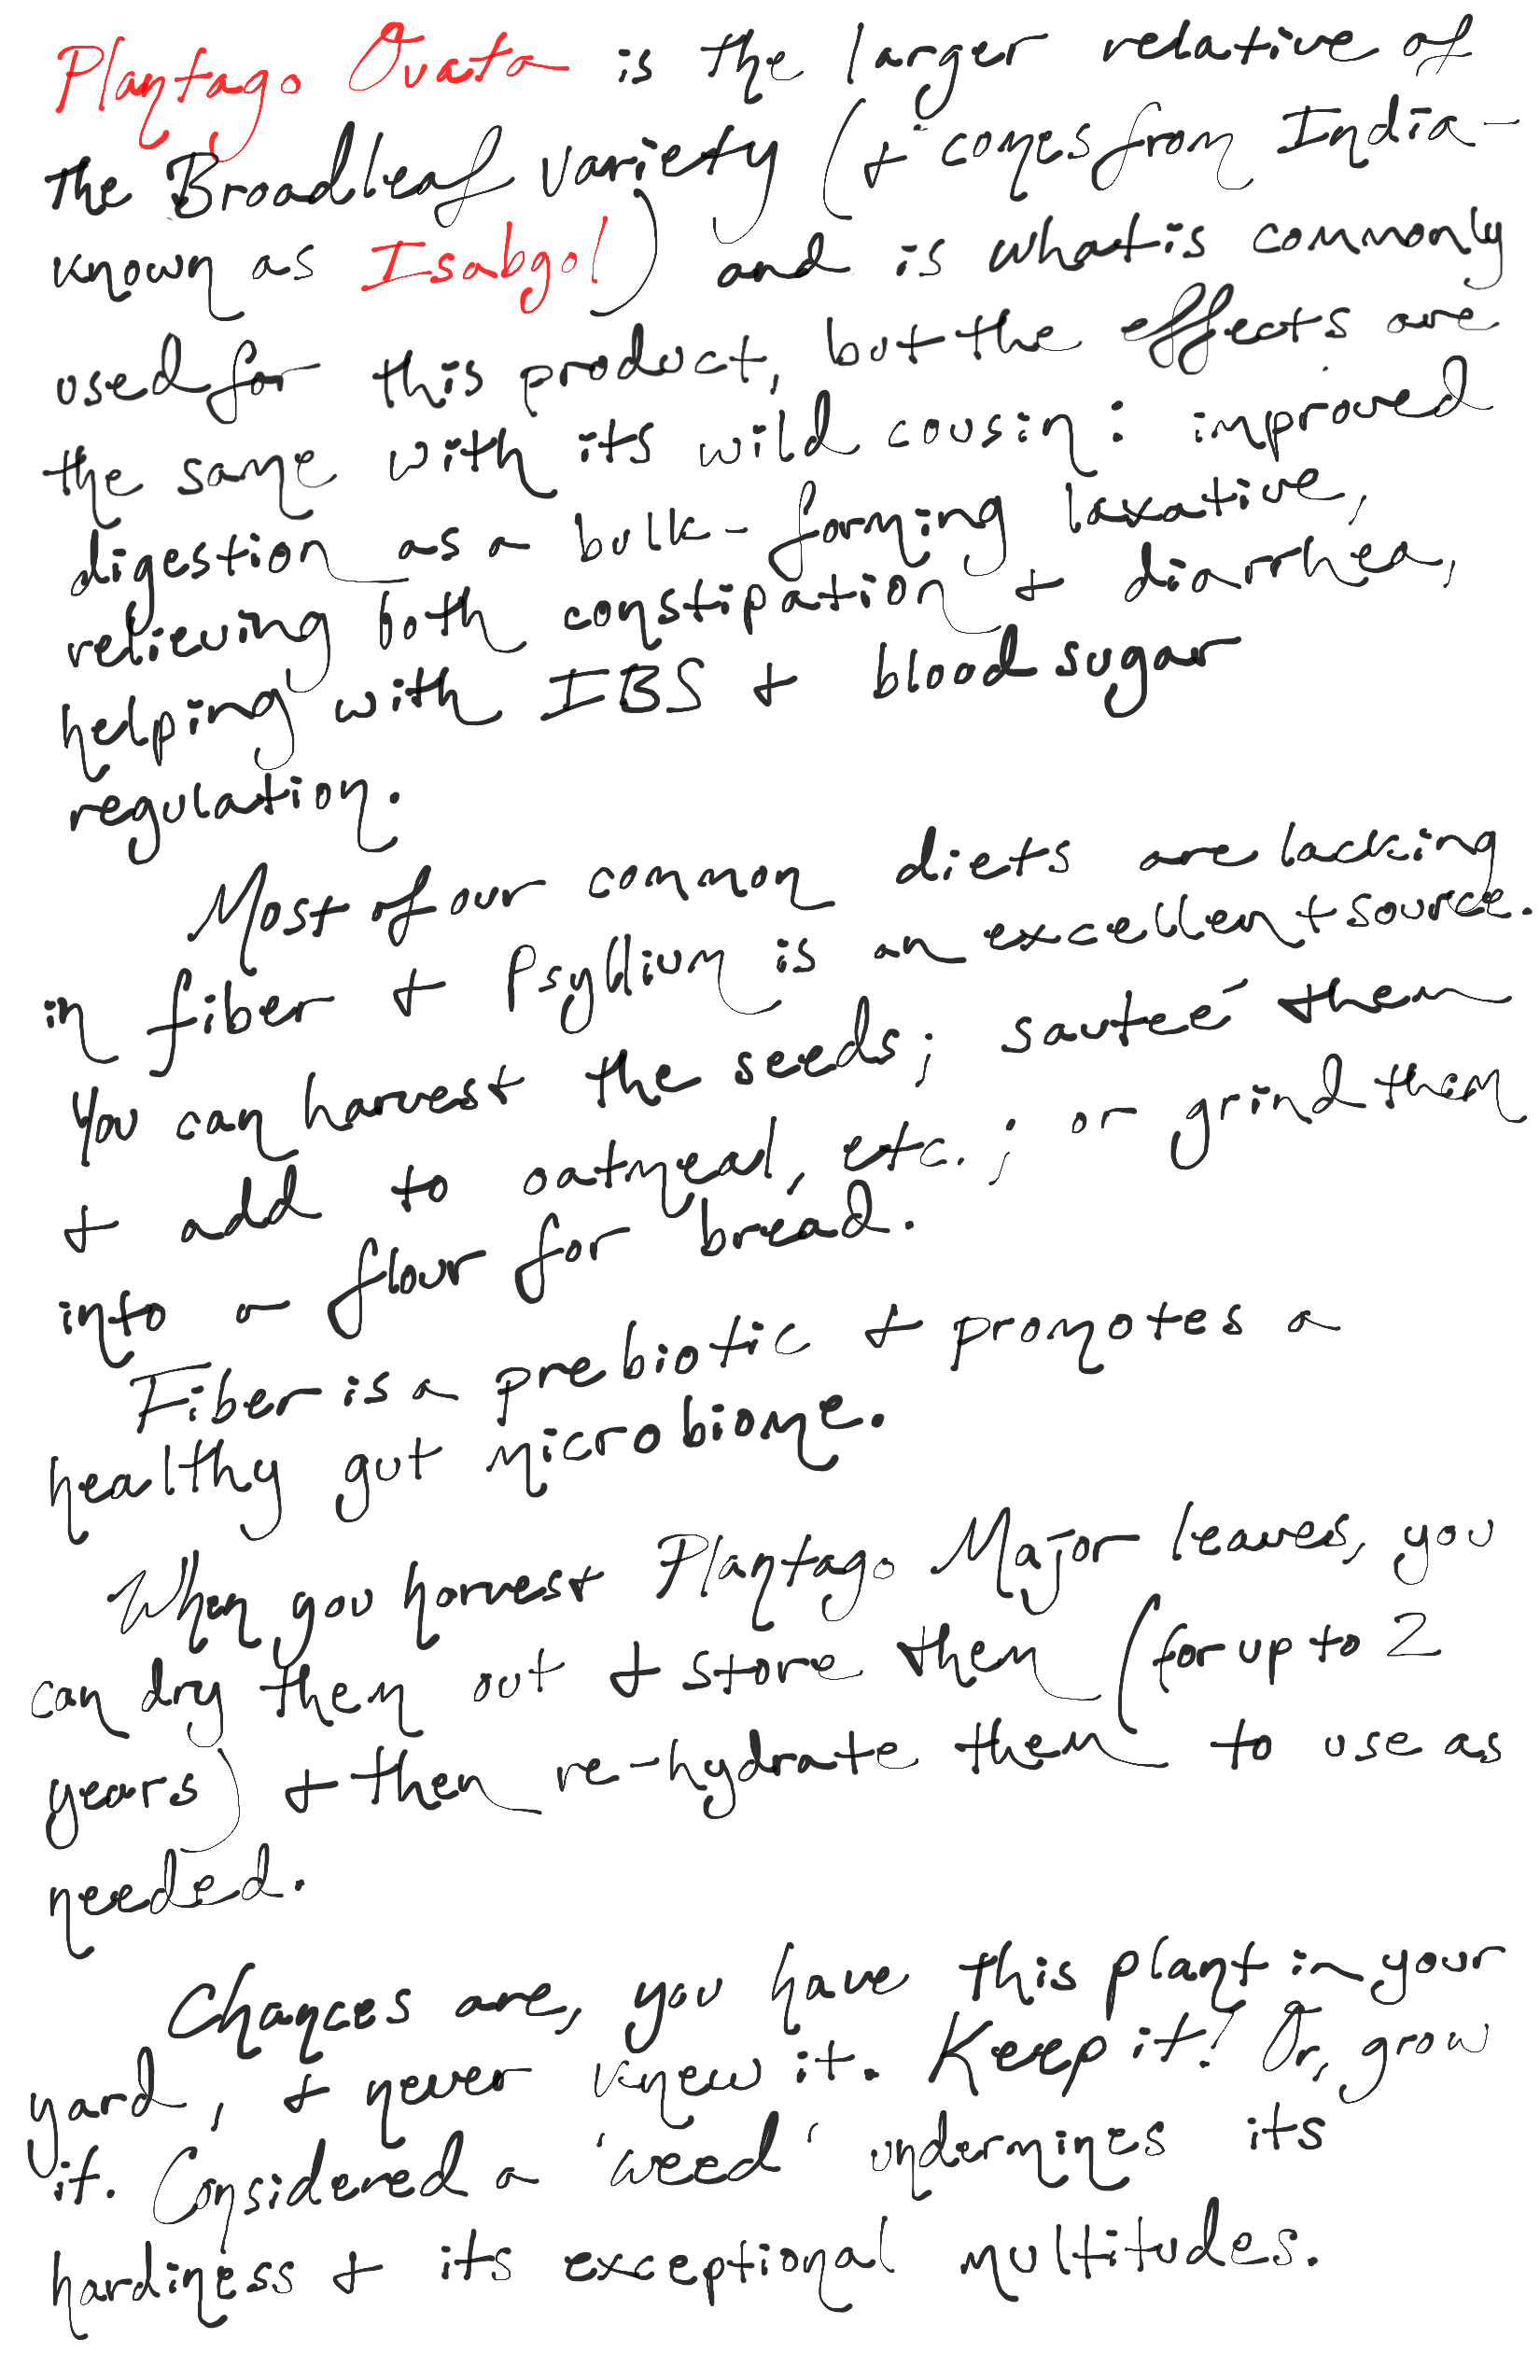 Plantago Ovata is the larger relative of
the Broadleaf variety (+ comes from India -
known as Isabgol) and is what is commonly
used for this product, but the effects are
the same with its wild cousin: improved
digestion as a bulk-forming laxative,
relieving both constipation + diarrhea,
helping with IBS + blood sugar
regulation.
Most of our common diets are lacking
in fiber + Psyllium is an excellent source.
You can harvest the seeds; sauteé them
+ add to oatmeal, etc.; or grind them
into a flour for bread.
Fiber is a prebiotic + promotes a
healthy gut microbiome.
When you harvest Plantago Major leaves, you
can dry them out + store them (for up to 2
years) + then re-hydrate them to use as
needed.
Chances are, you have this plant in your
yard, + never knew it. Keep it! Or, grow
it. Considered a 'weed' undermines its
hardiness + its exceptional multitudes.